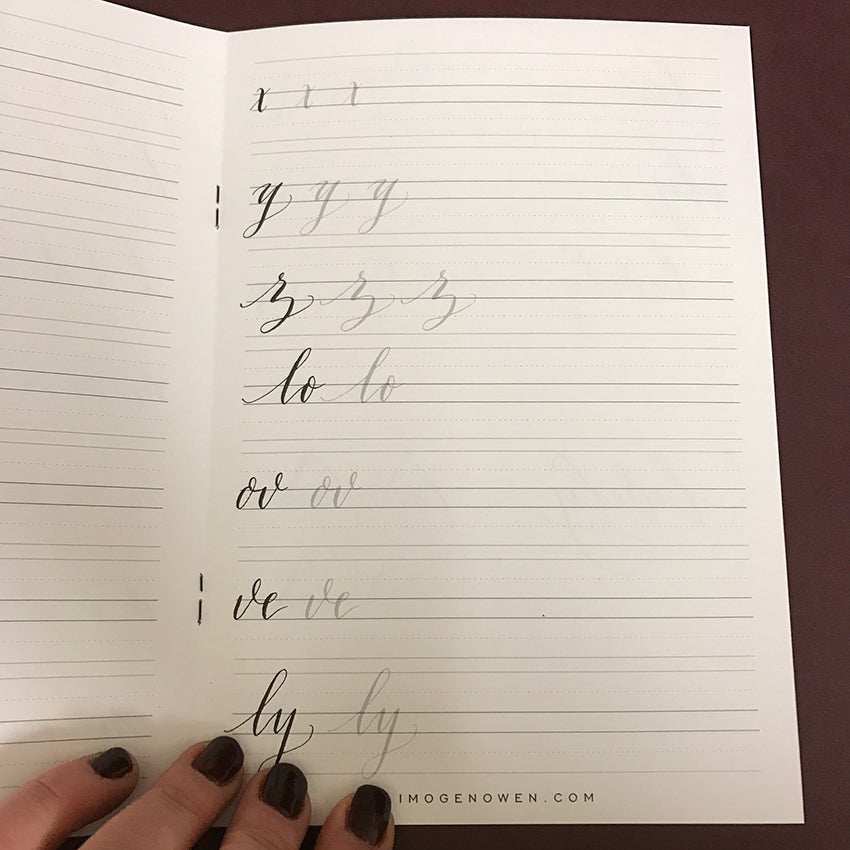 x x x
y y y
z z z
lo lo
ov ov
ve ve
ly ly
IMOGENOWEN.COM